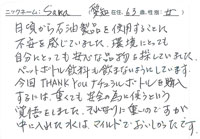 ニックネーム: Sana 愛知 在住 63 歳、性別: 女
日頃から石油製品を使用することに
不安を感じていました。環境にとっても
自分にとっても安心な品物を探していました。
ペットボトル飲料も飲まないようにしています。
今回 THANK YOU ナチュラルボトルを購入
するには、重くても安全の為に使うという
覚悟をしました。それ程に重いのですが
中に入れた水は、マイルドでおいしかったです。